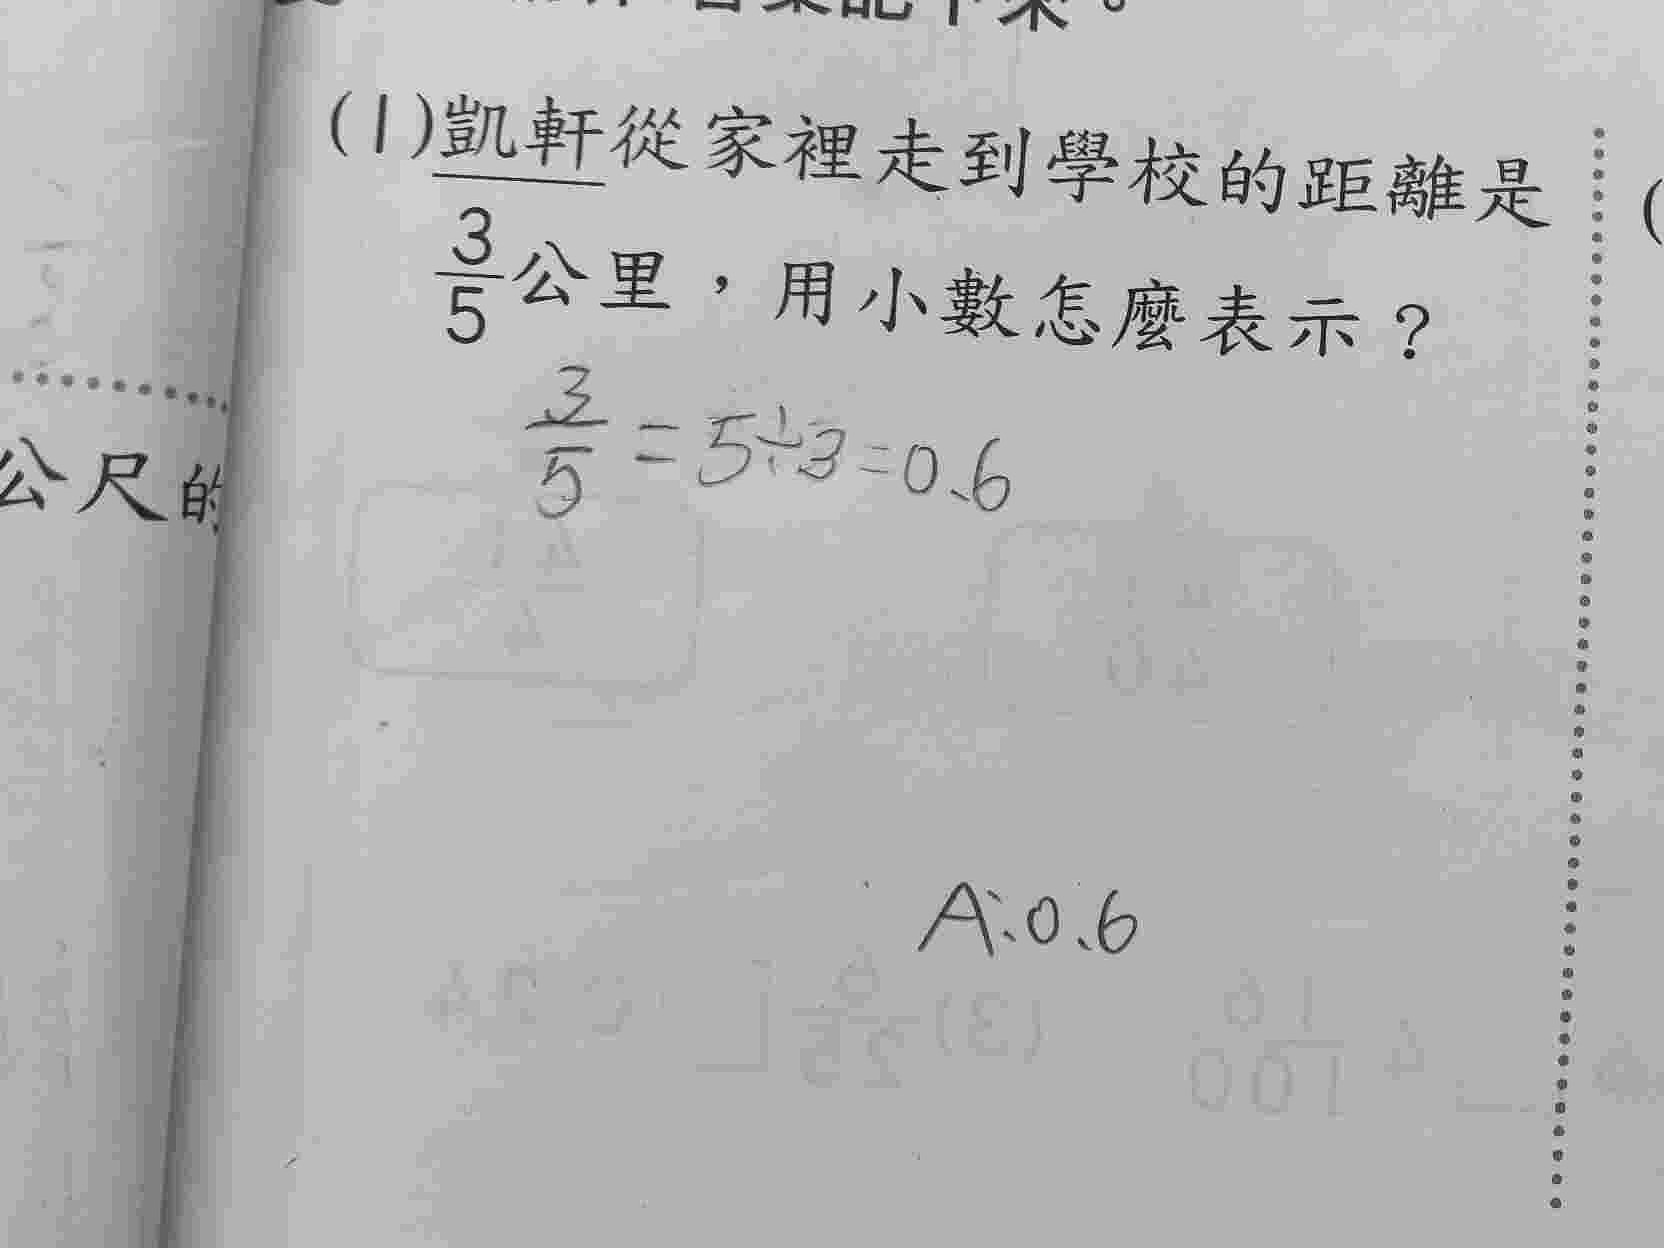 (1)凱軒從家裡走到學校的距離是
3/5公里，用小數怎麼表示？
3/5=5÷3=0.6
A:0.6
公尺的